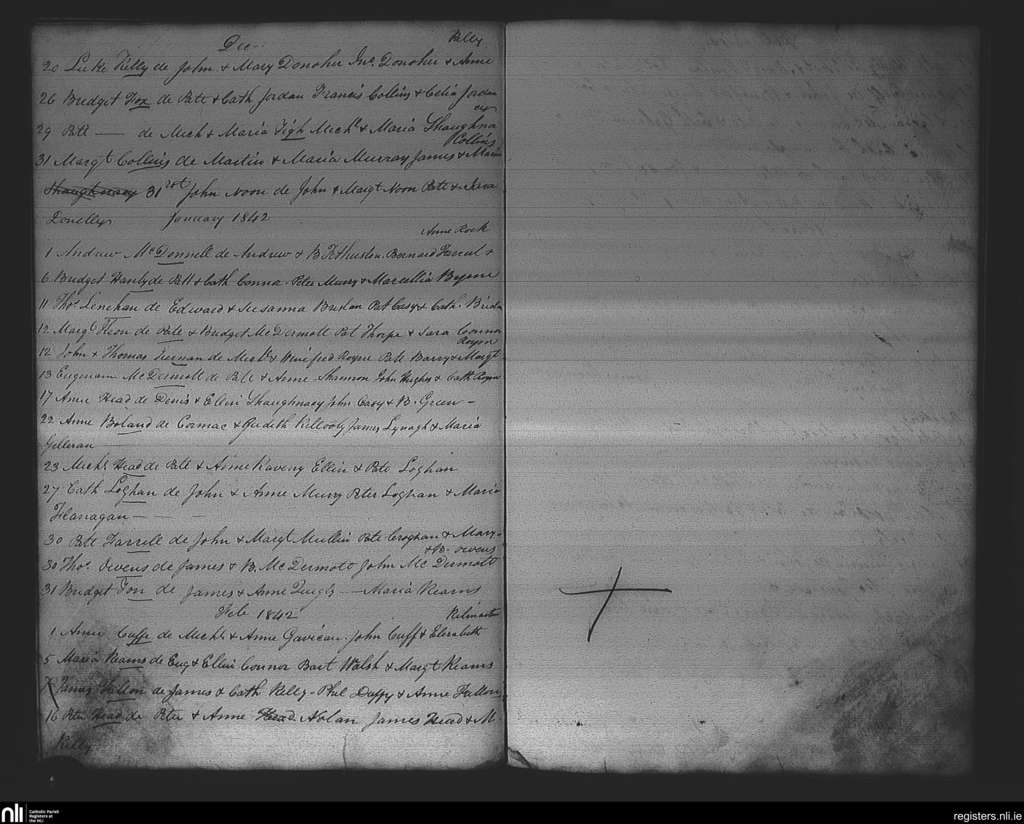 Dec
Kelly
20 Luke Kelly de John & Mary Donoher Jnᵒ Donoher & Anne
26 Bridget Fox de Patt & Cath Jordan Francis Collins & Celia Jordan
29 Patt — de Mich & Maria Tigh Michˡ & Maria Shaughna
cy
Collins
31 Margt Collins de Martin & Maria Murray James & Maria
Shaughnacy 31st John Noon de John & Margt Noon Pate &
Donellys January 1842
Anne Rock
1 Andrew McDonnell de Andrew & B. Bernard &
6 Bridget Hanly de Patt & Cath Conna Peter Murry & Marcellia Byrne
11 Thos Linehan de Edward & Susanna Brislan Pat Casy & Cath.
12 Margt de Pate & Bridget McDermott Pat Thorpe & Sara Connor
Royne
12 John & Thomas de Michl & Winefred Royne Pate Barry & Margt
13 McDermott de Pate & Anne Shannon John Hughes & Cath Royne
17 Anne Head de Denis & Ellen Shaughnacy John Casy & B. Green –
22 Anne Boland de Cormac & Judith Killooly James Lynagh & Maria
Gilleran
23 Michl Head de Patt & Anne Raveny Ellen & Pate Loghan
27 Cath Loghan de John & Anne Murry Peter Loghan & Maria
Flanagan — — —
30 Patt Farrell de John & Margt Mullin Pate Croghan & Mary
& B. Owens
30 Thos. Owens de James & B. McDermott John McDermott
31 Bridget Fox de James & Anne — Maria Kearns
Feb 1842
1 Anne Cuffe de Michl & Anne Gavican John Cuff & Elizabeth
5 Maria Kearns de Eug & Ellen Connor Bart Walsh & Margt Kearns
James Fallon de James & Cath Kelly Phil Duffy & Anne Fallon
16 Peter Head de Peter & Anne Head Nolan James Head & M
Kelly
nli
Catholic Parish
Registers at
the NLI
registers.nli.ie